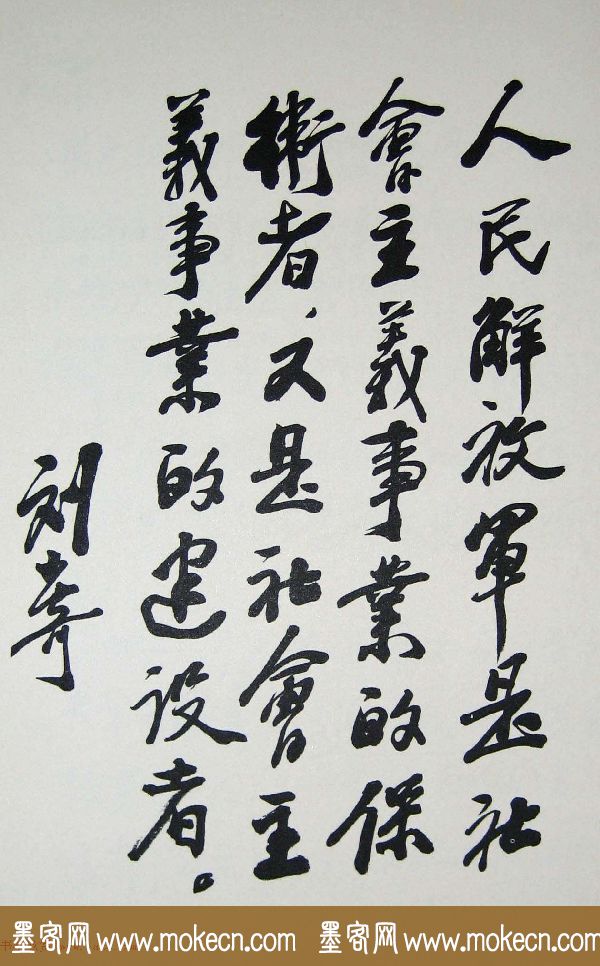 人民解放軍是社
會主義事業的保
衛者、又是社會主
義事業的建設者。
刘奇
墨客网 www.mokecn.com 墨客网 www.mokecn.com